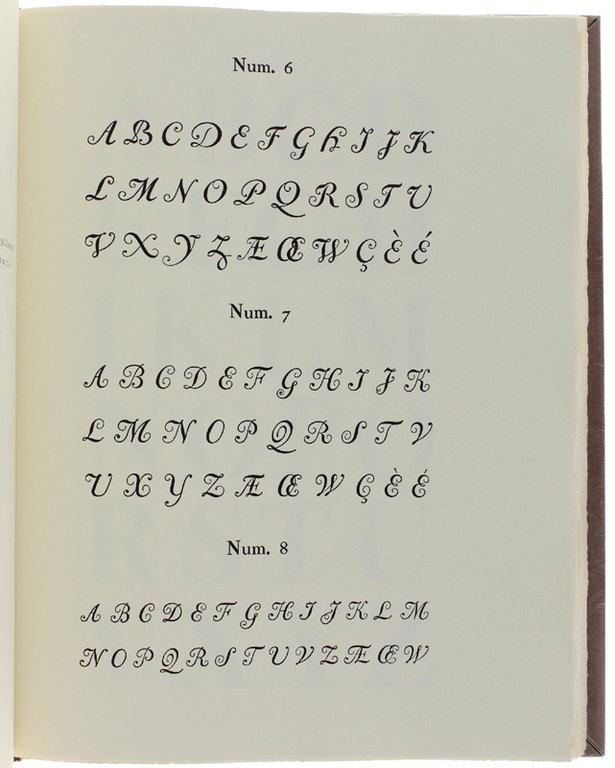 Num. 6
A B C D E F G h I J K
L M N O P Q R S T U
V X Y Z Æ Œ W Ç È É
Num. 7
A B C D E F G H I J K
L M N O P Q R S T V
U X Y Z Æ Œ W Ç È É
Num. 8
A B C D E F G H I J K L M
N O P Q R S T U V Z Æ Œ W